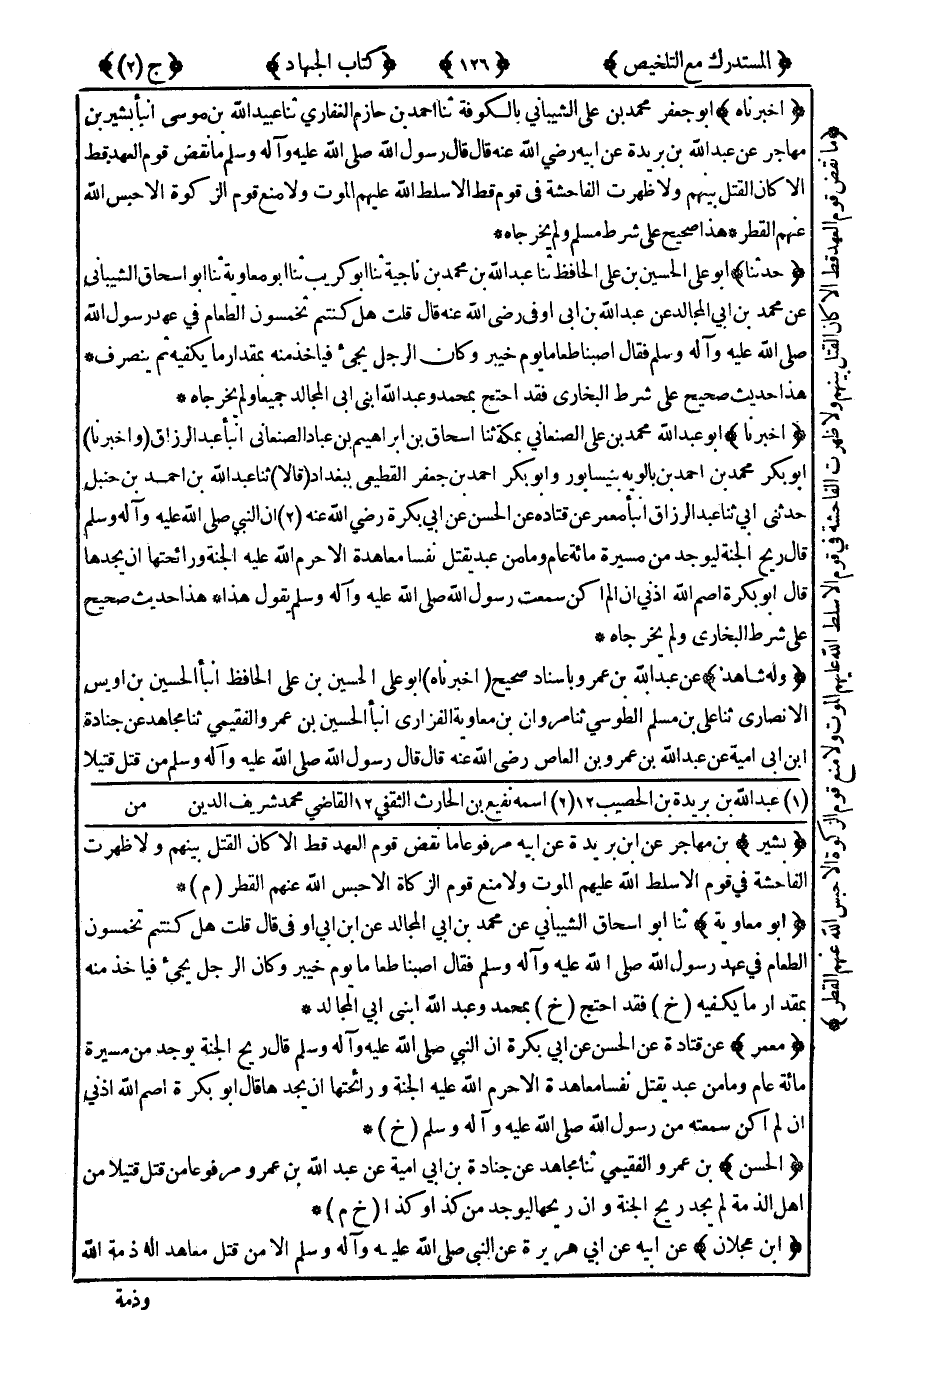 ﴿ المستدرك مع التلخيص ﴾ ﴿ ١٢٦ ﴾ ﴿ كتاب الجهاد ﴾ ﴿ ج (٢) ﴾
﴿ اخبرناه ﴾ ابو جعفر محمد بن على الشيباني بالكوفة ثنا احمد بن حازم الغفاري ثنا عبيد الله بن موسى انبأ بشير بن
مهاجر عن عبد الله بن بريدة عن ابيه رضي الله عنه قال قال رسول الله صلى الله عليه وآله وسلم ما نقض قوم العهد قط
الا كان القتل بينهم ولا ظهرت الفاحشة فى قوم قط الا سلط الله عليهم الموت ولا منع قوم الزكوة الا حبس الله
عنهم القطر * هذا صحيح على شرط مسلم ولم يخرجاه *
﴿ حدثنا ﴾ ابو على الحسين بن على الحافظ ثنا عبد الله بن محمد بن ناجية ثنا ابو كريب ثنا ابو معاوية ثنا ابو اسحاق الشيبانى
عن محمد بن ابي المجالد عن عبد الله بن ابى اوفى رضى الله عنه قال قلت هل كنتم تخمسون الطعام في عهد رسول الله
صلى الله عليه وآله وسلم فقال اصبنا طعاما يوم خيبر وكان الرجل يجىء فياخذ منه بمقدار ما يكفيه ثم ينصرف *
هذا حديث صحيح على شرط البخارى فقد احتج بمحمد وعبد الله ابنى ابى المجالد جميعا ولم يخرجاه *
﴿ اخبرنا ﴾ ابو عبد الله محمد بن على الصنعاني بمكة ثنا اسحاق بن ابراهيم بن عباد الصنعانى انبأ عبد الرزاق (واخبرنا)
ابو بكر محمد بن احمد بن بالويه بنيسابور وابو بكر احمد بن جعفر القطيعى ببغداد (قالا) ثنا عبد الله بن احمد بن حنبل
حدثنى ابي ثنا عبد الرزاق انبأ معمر عن قتاده عن الحسن عن ابي بكرة رضي الله عنه (٢) ان النبي صلى الله عليه وآله وسلم
قال ريح الجنة ليوجد من مسيرة مائة عام وما من عبد يقتل نفسا معاهدة الا حرم الله عليه الجنة ورائحتها ان يجدها
قال ابو بكرة اصم الله اذني ان لم اكن سمعت رسول الله صلى الله عليه وآله وسلم يقول هذا * هذا حديث صحيح
على شرط البخارى ولم يخرجاه *
﴿ وله شاهد ﴾ عن عبد الله بن عمرو باسناد صحيح (اخبرناه) ابو على الحسين بن على الحافظ انبأ الحسين بن اويس
الانصارى ثنا على بن مسلم الطوسي ثنا مروان بن معاوية الفزارى انبأ الحسين بن عمرو الفقيمي ثنا مجاهد عن جنادة
ابن ابى امية عن عبد الله بن عمرو بن العاص رضى الله عنه قال قال رسول الله صلى الله عليه وآله وسلم من قتل قتيلا
(١) عبد الله بن بريدة بن الحصيب ١٢ (٢) اسمه نفيع بن الحارث الثقفي ١٢ القاضي محمد شريف الدين من
﴿ بشير ﴾ بن مهاجر عن ابن بريدة عن ابيه مرفوعا ما نقض قوم العهد قط الا كان القتل بينهم ولا ظهرت
الفاحشة في قوم الا سلط الله عليهم الموت ولا منع قوم الزكاة الا حبس الله عنهم القطر (م) *
﴿ ابو معاوية ﴾ ثنا ابو اسحاق الشيباني عن محمد بن ابي المجالد عن ابن ابي اوفى قال قلت هل كنتم تخمسون
الطعام في عهد رسول الله صلى الله عليه وآله وسلم فقال اصبنا طعاما يوم خيبر وكان الرجل يجىء فياخذ منه
بمقدار ما يكفيه (خ) فقد احتج (خ) بمحمد وعبد الله ابنى ابي المجالد *
﴿ معمر ﴾ عن قتادة عن الحسن عن ابي بكرة ان النبي صلى الله عليه وآله وسلم قال ريح الجنة يوجد من مسيرة
مائة عام وما من عبد يقتل نفسا معاهدة الا حرم الله عليه الجنة ورائحتها ان يجدها قال ابو بكرة اصم الله اذني
ان لم اكن سمعته من رسول الله صلى الله عليه وآله وسلم (خ) *
﴿ الحسن ﴾ بن عمرو الفقيمي ثنا مجاهد عن جنادة بن ابى امية عن عبد الله بن عمرو مرفوعا من قتل قتيلا من
اهل الذمة لم يجد ريح الجنة وان ريحها ليوجد من كذا وكذا (خ م) *
﴿ ابن عجلان ﴾ عن ابيه عن ابي هريرة عن النبى صلى الله عليه وآله وسلم الا من قتل معاهدا له ذمة الله
وذمة
﴿ ما نقض قوم العهد قط الا كان القتل بينهم ولا ظهرت الفاحشة في قوم الا سلط الله عليهم الموت ولا منع قوم الزكوة الا حبس الله عنهم القطر ﴾